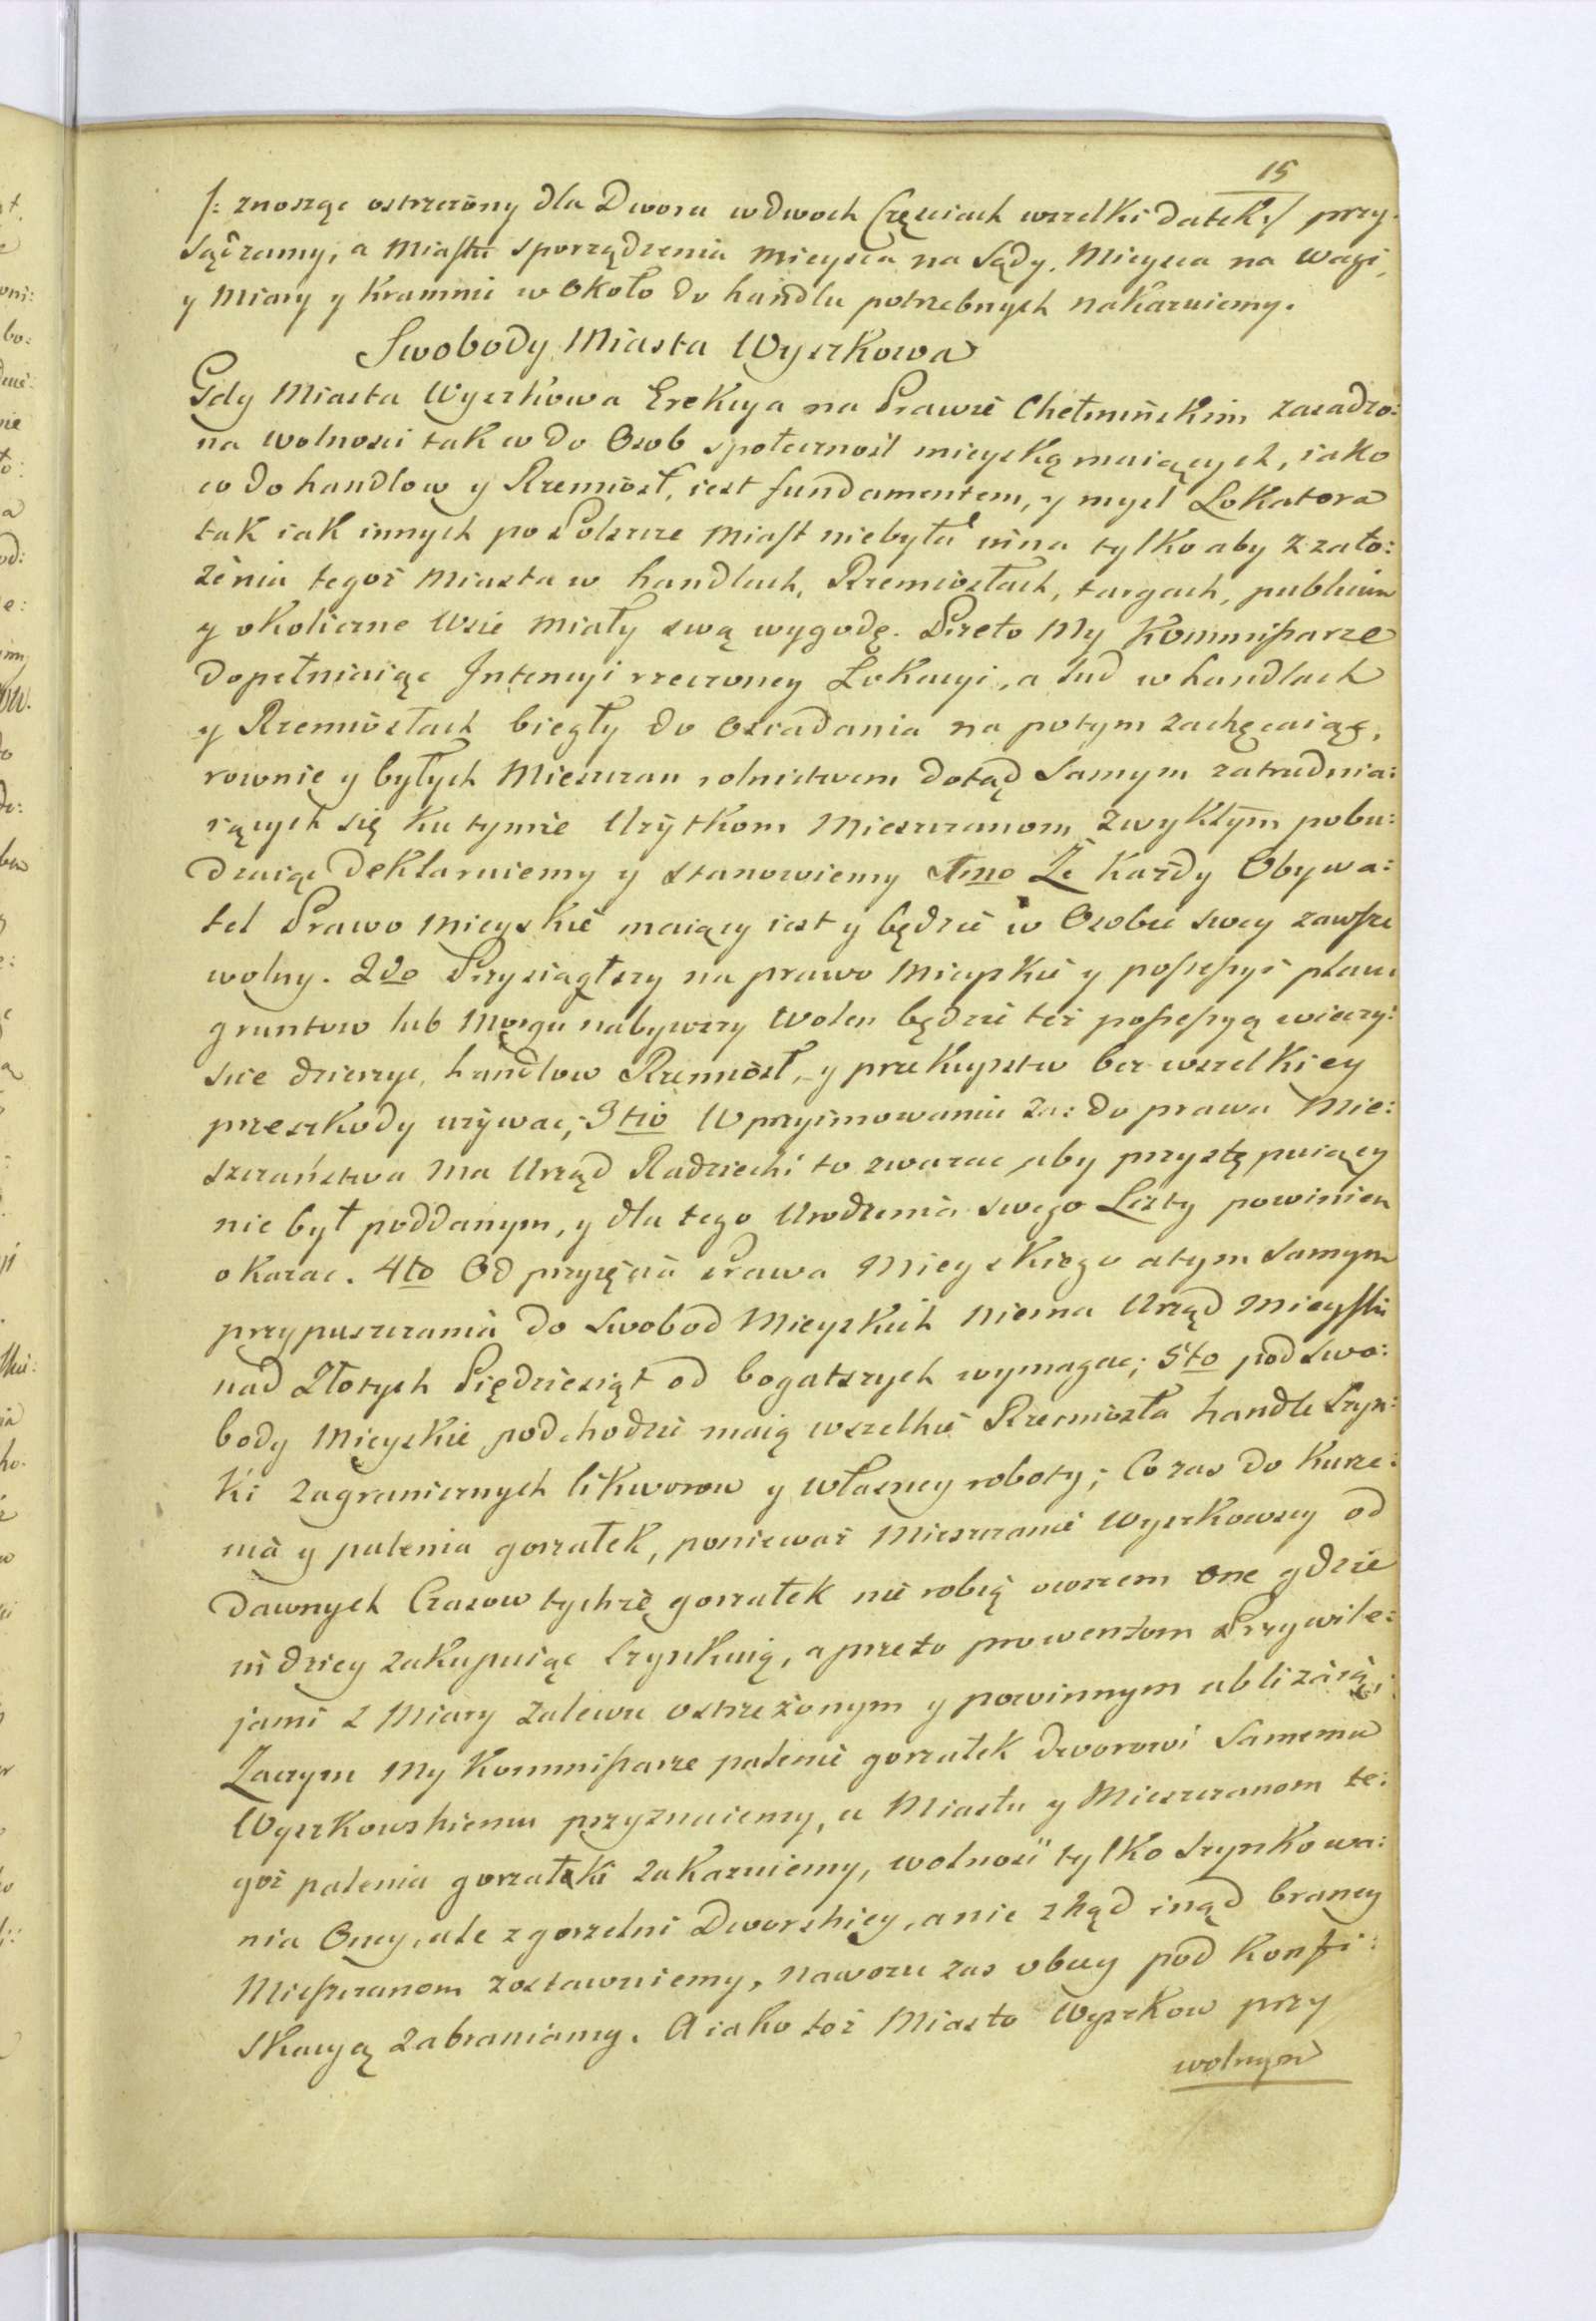 15
/: znosząc ostrzeżony dla Dwora w dwoch Częsciach wszelki datek :/ przy:
sądzamy, a Miastu sporządzenia mieysca na Sądy. Mieysca na wagi,
y Miary y Kramnic w około do handlu potrzebnych nakazuiemy.
Swobody Miasta Wyszkowa
Gdy Miasta Wyszkowa Erekcya na Prawie Chełmińskim zasadzo:
na wolnosci tak w do Osob społecznosć mieyską maiących, iako
w do handlow y Rzemiosł, iest fundamentem, y mysl Lokatora
tak iak innych po Polszcze Miast niebyła inna tylko aby z zało:
żenia tegoż Miasta w handlach, Rzemiosłach, targach, publicum
y okoliczne Wsie miały swą wygodę. Przeto My Kommissarze
dopełniaiąc Jntencyi rzeczoney Lokacyi, a lud w handlach
y Rzemiosłach biegły do osiadania na potym zachęcaiąc,
rownie y byłych Mieszczan rolnictwem dotąd samym zatrudnia:
iących się ku tymże Użytkom Mieszczanom zwykłym pobu:
dzaiąc deklaruiemy y stanowiemy 1mo Że każdy Obywa:
tel Prawo Mieyskie maiący iest y będzie w Osobie swey zawsze
wolny. 2do Przysiągłszy na prawo Mieyskie y possessyi placu
gruntow lub Morgu nabywszy wolen będzie też possessyą wieczy:
scie dzierżyć, handlow Rzemiosł, y przekupstw bez wszelkiey
przeszkody używac; 3tio W przyimowaniu zas do prawa Mie:
szczaństwa ma Urząd Radziecki to zwazac aby przystępuiący
nie był poddanym, y dla tego Urodzenia swego Listy powinien
okazac. 4to Od przyięcia Prawa Mieyskiego a tym samym
przypuszczania do Swobod Mieyskich niema Urząd Mieyski
nad Złotych Piędziesiąt od bogatszych wymagac; 5to pod swo:
body Mieyskie podchodzic maią wszelkie Rzemiosła handle Szyn:
ki zagranicznych likworow y własney roboty; Co zas do kurze:
nia y palenia gorzałek, ponieważ Mieszczanie Wyszkowscy od
dawnych Czasow tychże gorzałek nie robią owszem one gdzie
indziey zakupuiąc szynkuią, a przeto prowentom Przywile:
jami z Miary zalewu ostrzeżonym y powinnym ubliżaią;
Zaczym My Kommissarze palenie gorzałek dworowi Samemu
Wyszkowskiemu przyznaiemy, a Miastu y Mieszczanom te:
goż palenia gorzałki zakazuiemy, wolność tylko szynkowa:
nia Oney, ale z gorzelni Dworskiey, a nie zkąd inąd braney
Mieszczanom zostawuiemy, nawozu zas obcey pod konfi:
skacyą zabraniamy. A iako toż Miasto Wyszkow przy
wolnym